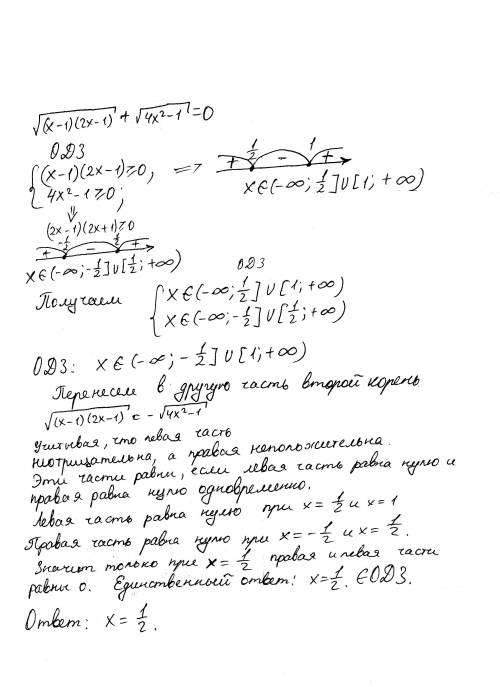 √(x-1)(2x-1) + √4x²-1 = 0
ОДЗ
{(x-1)(2x-1)≥0, => + 1/2 - 1 +
4x²-1≥0; x∈(-∞; 1/2]∪[1; +∞)
⇓
(2x-1)(2x+1)≥0
+ -1/2 - 1/2 +
x∈(-∞; -1/2]∪[1/2; +∞)
ОДЗ
Получаем {x∈(-∞; 1/2]∪[1; +∞)
x∈(-∞; -1/2]∪[1/2; +∞)
ОДЗ: x∈(-∞; -1/2]∪[1; +∞)
Перенесем в другую часть второй корень
√(x-1)(2x-1) = -√4x²-1
Учитывая, что левая часть
неотрицательна, а правая неположительна.
Эти части равны, если левая часть равна нулю и
правая равна нулю одновременно.
Левая часть равна нулю при x = 1/2 и x = 1
Правая часть равна нулю при x = -1/2 и x = 1/2.
Значит только при x = 1/2 правая и левая части
равны 0. Единственный ответ: x = 1/2. ∈ОДЗ.
Ответ: x = 1/2.